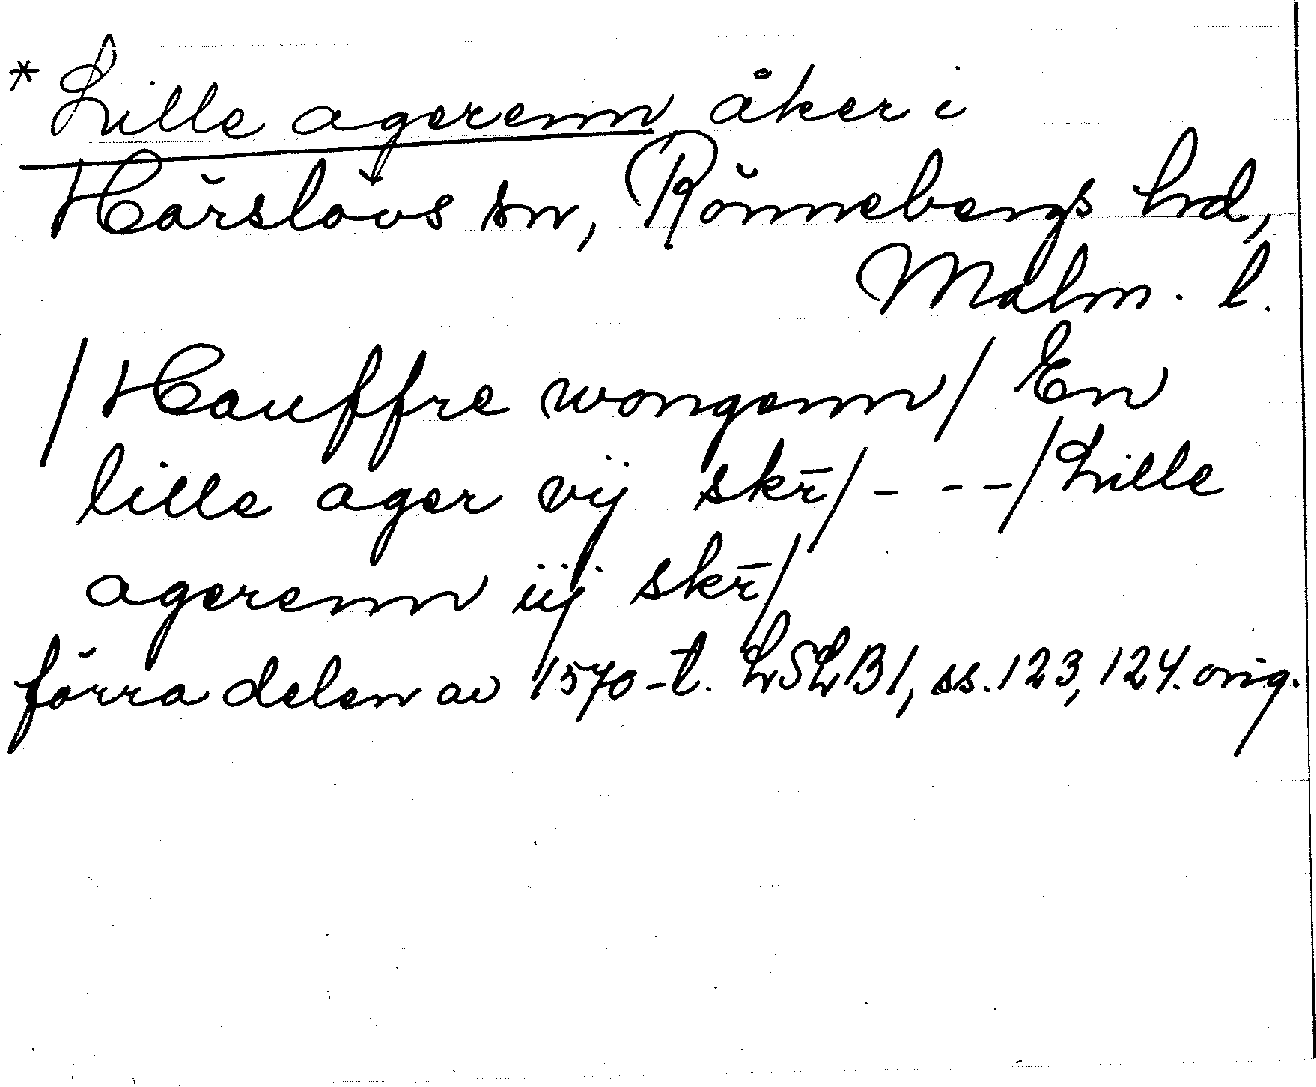 * Lille agerenn åker i
Härslövs sn, Rönnebergs hrd,
Malm. l.
/Hauffre wongenn/ En
lille ager vij skr̄/ - - -/Lille
agerenn iij skr̄/
förra delen av 1570-t. LSLB1, ss. 123, 124. orig.